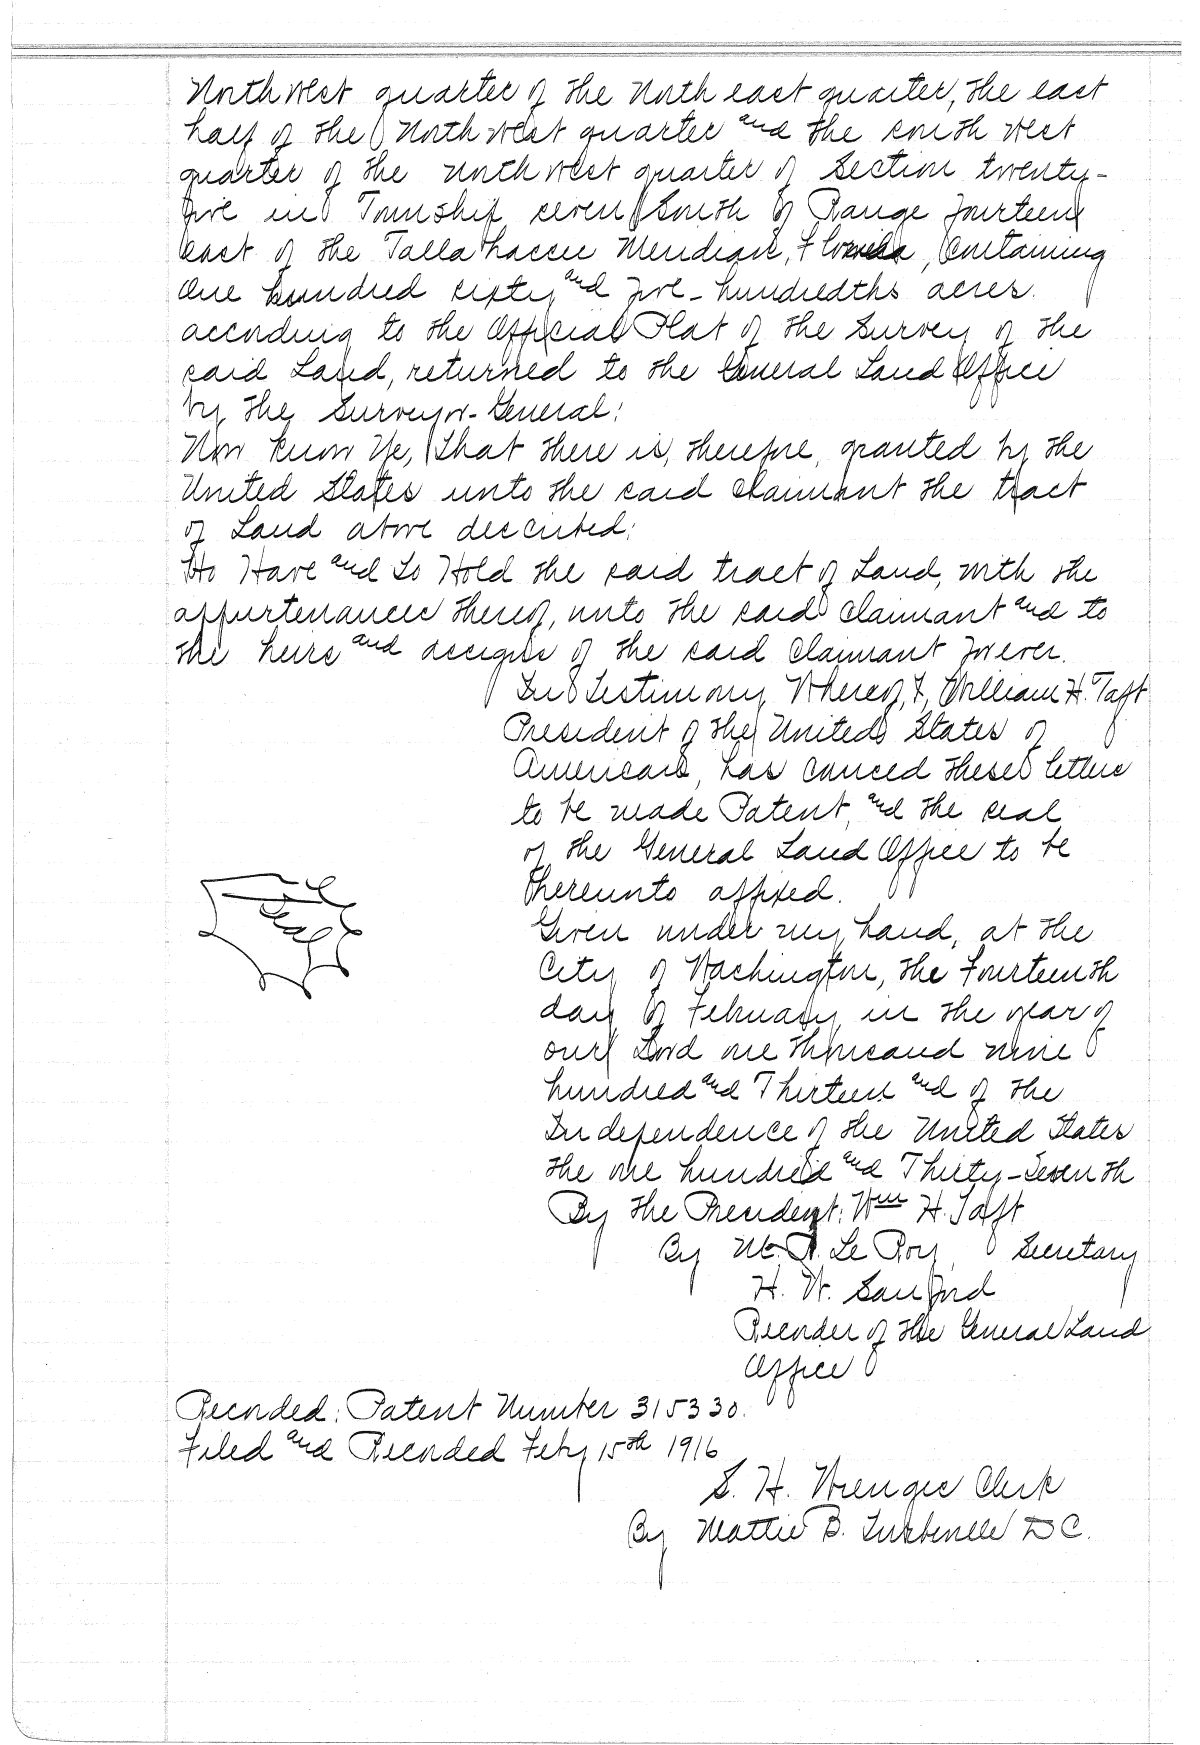 Northwest quarter of the North east quarter, the east
half of the Northwest quarter and the south west
quarter of the northwest quarter of Section twenty-
five in Township seven South of Range fourteen
east of the Tallahassee Meridian, Florida, Containing
One hundred sixty and five-hundredths acres.
according to the Official Plat of the Survey of the
said Land, returned to the General Land Office
by the Surveyor-General:
Now Know Ye, That there is, therefore, granted by the
United States unto the said claimant the tract
of Land above described:
To Have and to Hold the said tract of Land, with the
appurtenances thereof, unto the said Claimant and to
the heirs and assigns of the said claimant forever.
In Testimony Whereof, I, William H. Taft
President of the United States of
America, has caused these letters
to be made Patent, and the seal
of the General Land Office to be
thereunto affixed.
Seal
Given under my hand, at the
City of Washington, the Fourteenth
day of February in the year of
our Lord one thousand nine
hundred and Thirteen and of the
Independence of the United States
the one hundred and Thirty-Seventh
By the President: Wm H. Taft
By M. P. Le Roy Secretary
H. W. Sanford
Recorder of the General Land
Office
Recorded: Patent Number 315330.
Filed and Recorded Feby 15th 1916
S. H. Wienges Clerk
By Mattie B. D C.